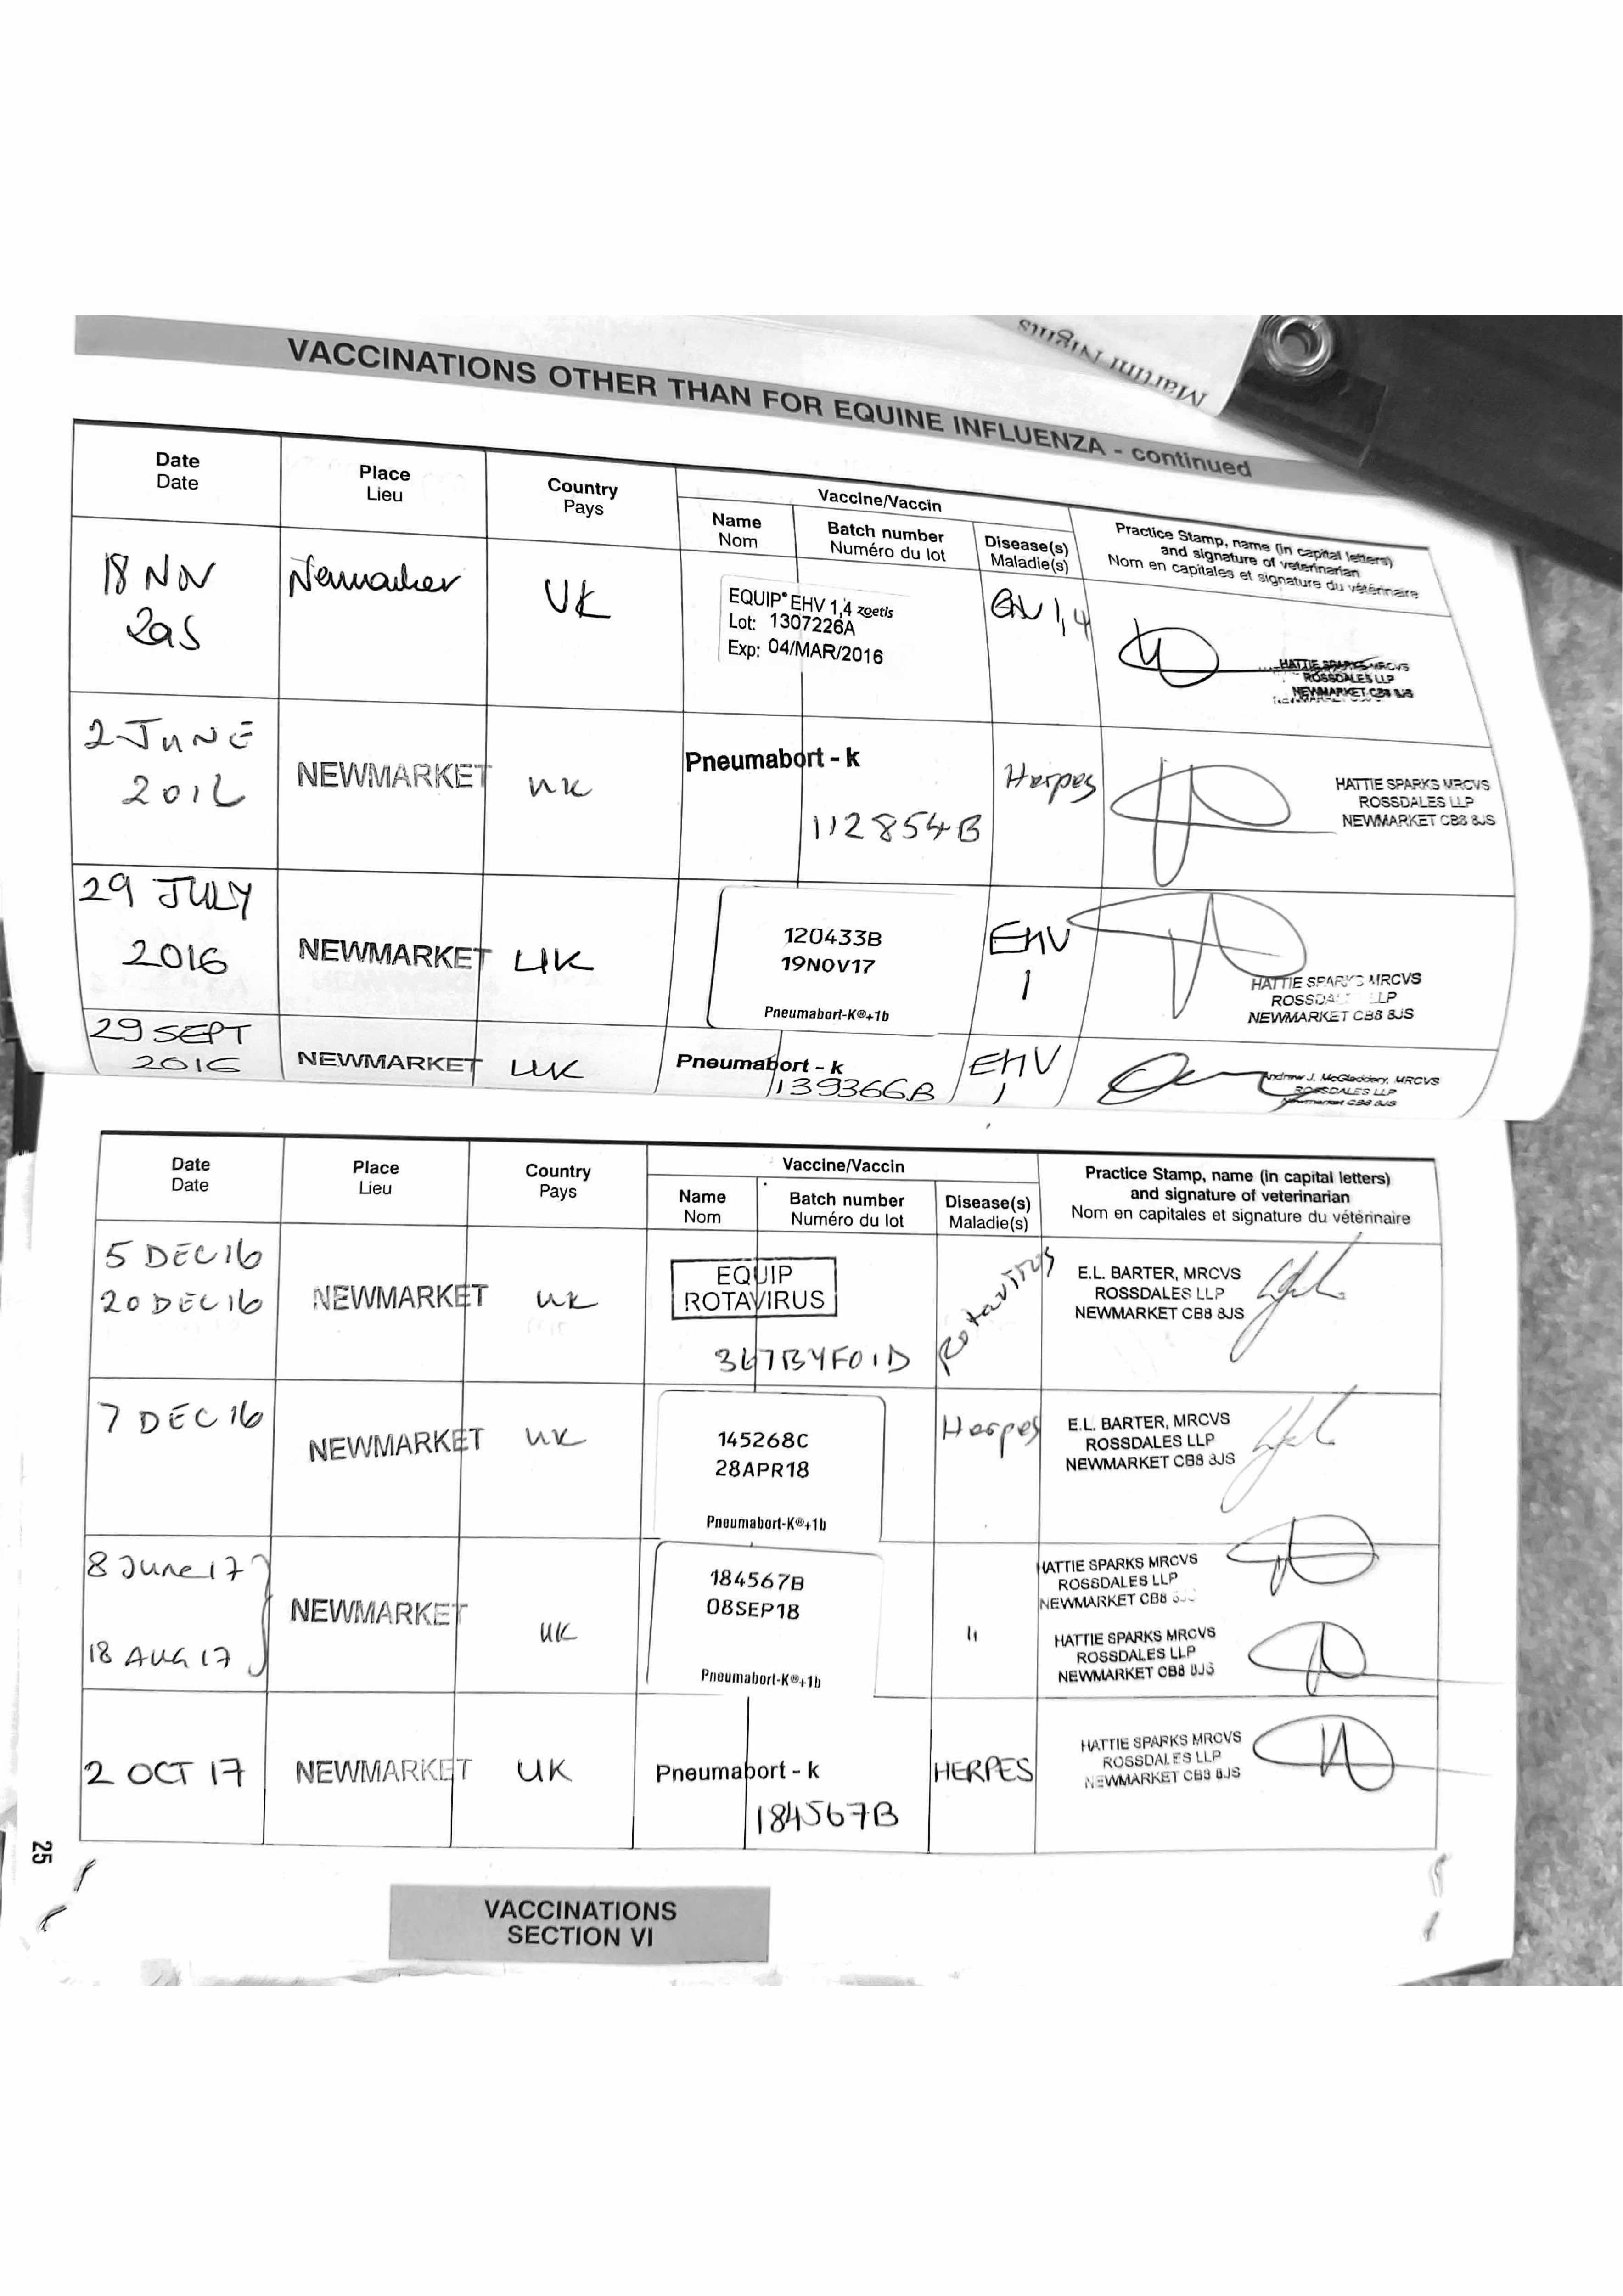 Martin Nigus
VACCINATIONS OTHER THAN FOR EQUINE INFLUENZA - continued
Date Place Country Vaccine/Vaccin Practice Stamp, name (in capital letters)
Date Lieu Pays and signature of veterinarian
Name Batch number Disease(s) Nom en capitales et signature du vétérinaire
Nom Numéro du lot Maladie(s)
18 NOV UK EQUIP® EHV 1,4 zoetis 1,4
Lot: 1307226A
Exp: 04/MAR/2016
HATTIE SPARKS MRCVS
ROSSDALES LLP
NEWMARKET CB8 8JS
2 JUNE NEWMARKET UK Pneumabort - k Herpes HATTIE SPARKS MRCVS
ROSSDALES LLP
112854B NEWMARKET CB8 8JS
29 JULY
2016 NEWMARKET UK 120433B EHV
19NOV17 1
Pneumabort-K®+1b
HATTIE SPARKS MRCVS
ROSSDALES LLP
NEWMARKET CB8 8JS
29 SEPT
2016 NEWMARKET UK Pneumabort - k EHV
139366B 1
Andrew J. McGladdery, MRCVS
ROSSDALES LLP
Newmarket CB8 8JS
Date Place Country Vaccine/Vaccin Practice Stamp, name (in capital letters)
Date Lieu Pays and signature of veterinarian
Name Batch number Disease(s) Nom en capitales et signature du vétérinaire
Nom Numéro du lot Maladie(s)
5 DEC 16 EQUIP Rotavirus E.L. BARTER, MRCVS
20 DEC 16 NEWMARKET UK ROTAVIRUS ROSSDALES LLP
NEWMARKET CB8 8JS
7 DEC 16 NEWMARKET UK 145268C Herpes E.L. BARTER, MRCVS
28APR18 ROSSDALES LLP
NEWMARKET CB8 8JS
Pneumabort-K®+1b
8 June 17 184567B HATTIE SPARKS MRCVS
08SEP18 ROSSDALES LLP
NEWMARKET UK " NEWMARKET CB8
18 AUG 17 HATTIE SPARKS MRCVS
ROSSDALES LLP
Pneumabort-K®+1b NEWMARKET CB8 8JS
2 OCT 17 NEWMARKET UK Pneumabort - k HERPES HATTIE SPARKS MRCVS
ROSSDALES LLP
184567B NEWMARKET CB8 8JS
25
VACCINATIONS
SECTION VI